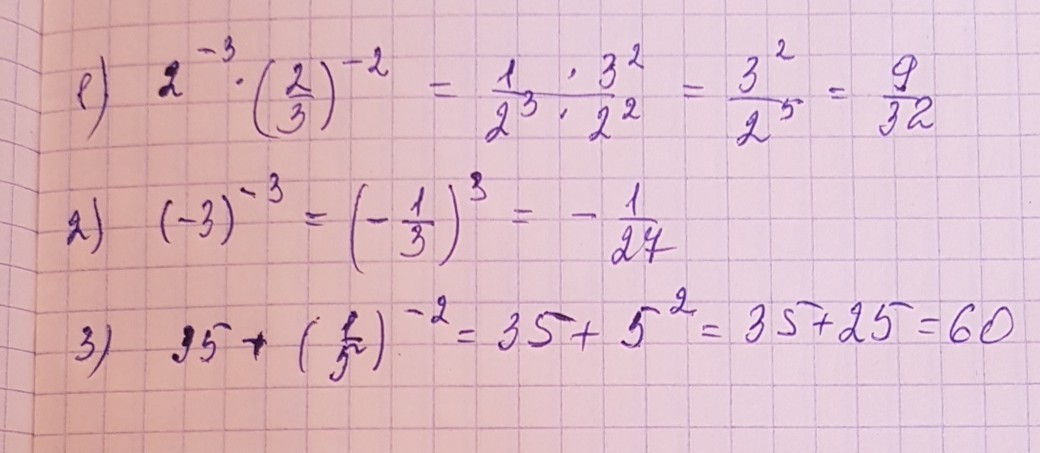 1) 2^{-3} · (2/3)^{-2} = (1 · 3^2)/(2^3 · 2^2) = 3^2/2^5 = 9/32
2) (-3)^{-3} = (-1/3)^3 = -1/27
3) 35 + (1/5)^{-2} = 35 + 5^2 = 35 + 25 = 60